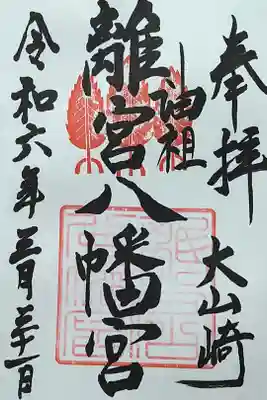 奉拝
大山崎
油祖
離宮八幡宮
令和六年三月三十一日